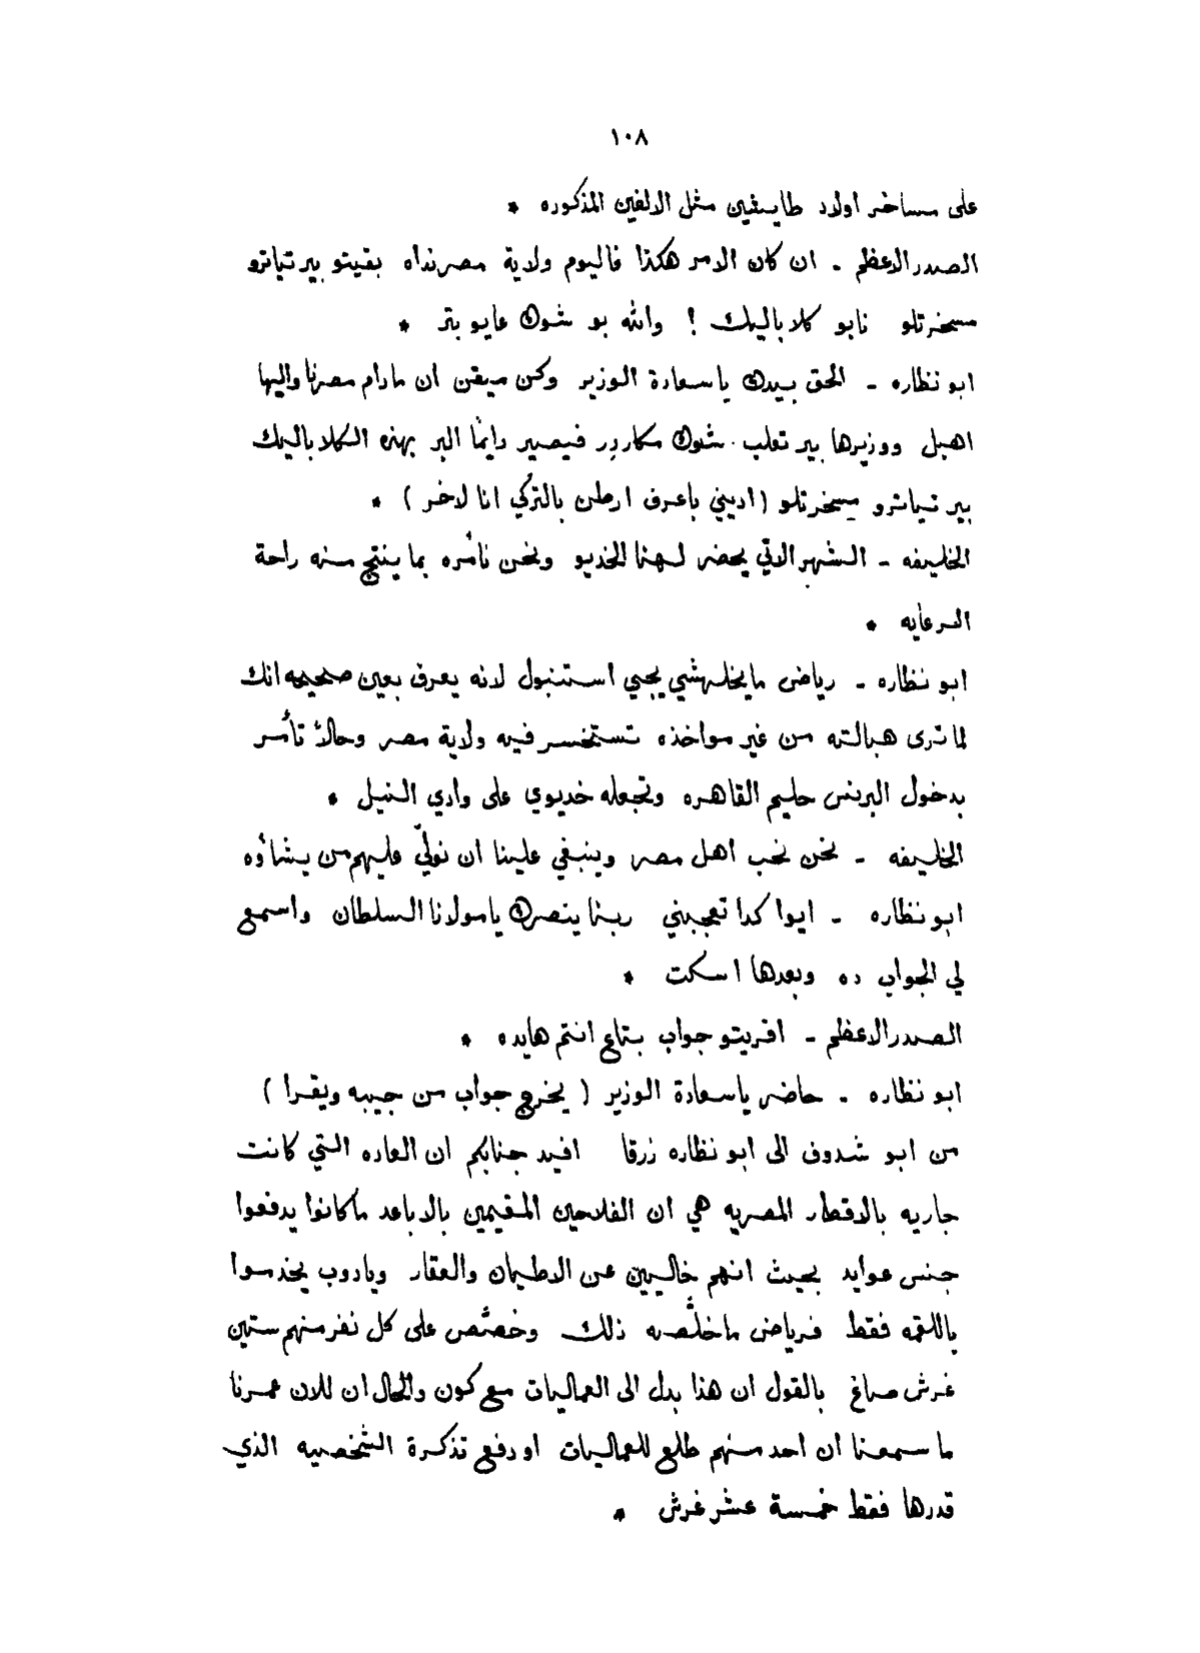 ١٠٨
على مساخر اولاد طايشين مثل الالفين المذكوره *
الصدر الاعظم ـ ان كان الامر هكذا فاليوم ولاية مصرنداه بقيتو بير تياترو
مسخرتلو نابو كلاباليك ! والله بو شوك عايو بتر *
ابو نظاره ـ الحق بيدك ياسعادة الوزير وكن ميقن ان مادام مصرنا واليها
اهبل ووزيرها بير تعلب شوك مكاردر فيصير دايما البر بهذه الكلاباليك
بير تياترو مسخرتلو (اديني باعرف ارطن بالتركي انا لاخر) *
الخليفه ـ الشهر الاتي يحضر لهنا الخديو ونحن نأمره بما ينتج منه راحة
الرعايه *
ابو نظاره ـ رياض مايخلهشي يجي استنبول لانه يعرف بعين صحيحه انك
لما ترى هبالته من غير مواخذه تستخسر فيه ولاية مصر وحالاً تأمر
بدخول البرنس حليم القاهره وتجعله خديوي على وادي النيل *
الخليفه ـ نحن نحب اهل مصر وينبغي علينا ان نولّي عليهم من يشاؤه
ابو نظاره ـ ايوا كدا تعجبني ربنا ينصرك يامولانا السلطان واسمع
لي الجواب ده وبعدها اسكت *
الصدر الاعظم ـ اقريتو جواب بتاع انتم هايده *
ابو نظاره ـ حاضر ياسعادة الوزير ( يخرج جواب من جيبه ويقرا )
من ابو شدوف الى ابو نظاره زرقا افيد جنابكم ان العاده التي كانت
جاريه بالاقطار المصريه هي ان الفلاحين المقيمين بالاباعد ماكانوا يدفعوا
جنس عوايد بحيث انهم خاليين عن الاطيان والعقار ويادوب يخدموا
باللقمه فقط فرياض ماخلّصه ذلك وخصّص على كل نفر منهم ستين
غرش صاغ بالقول ان هذا بدل الى العماليات مع كون والحال ان للان عمرنا
ما سمعنا ان احد منهم طلع للعماليات او رفع تذكرة الشخصيه الذي
قدرها فقط خمسة عشر غرش *